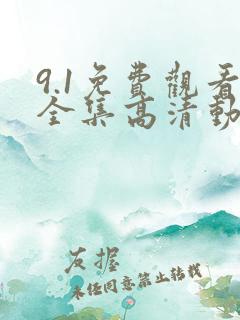 9.1免費觀看
全集高清動
友握
未任同意禁止转载